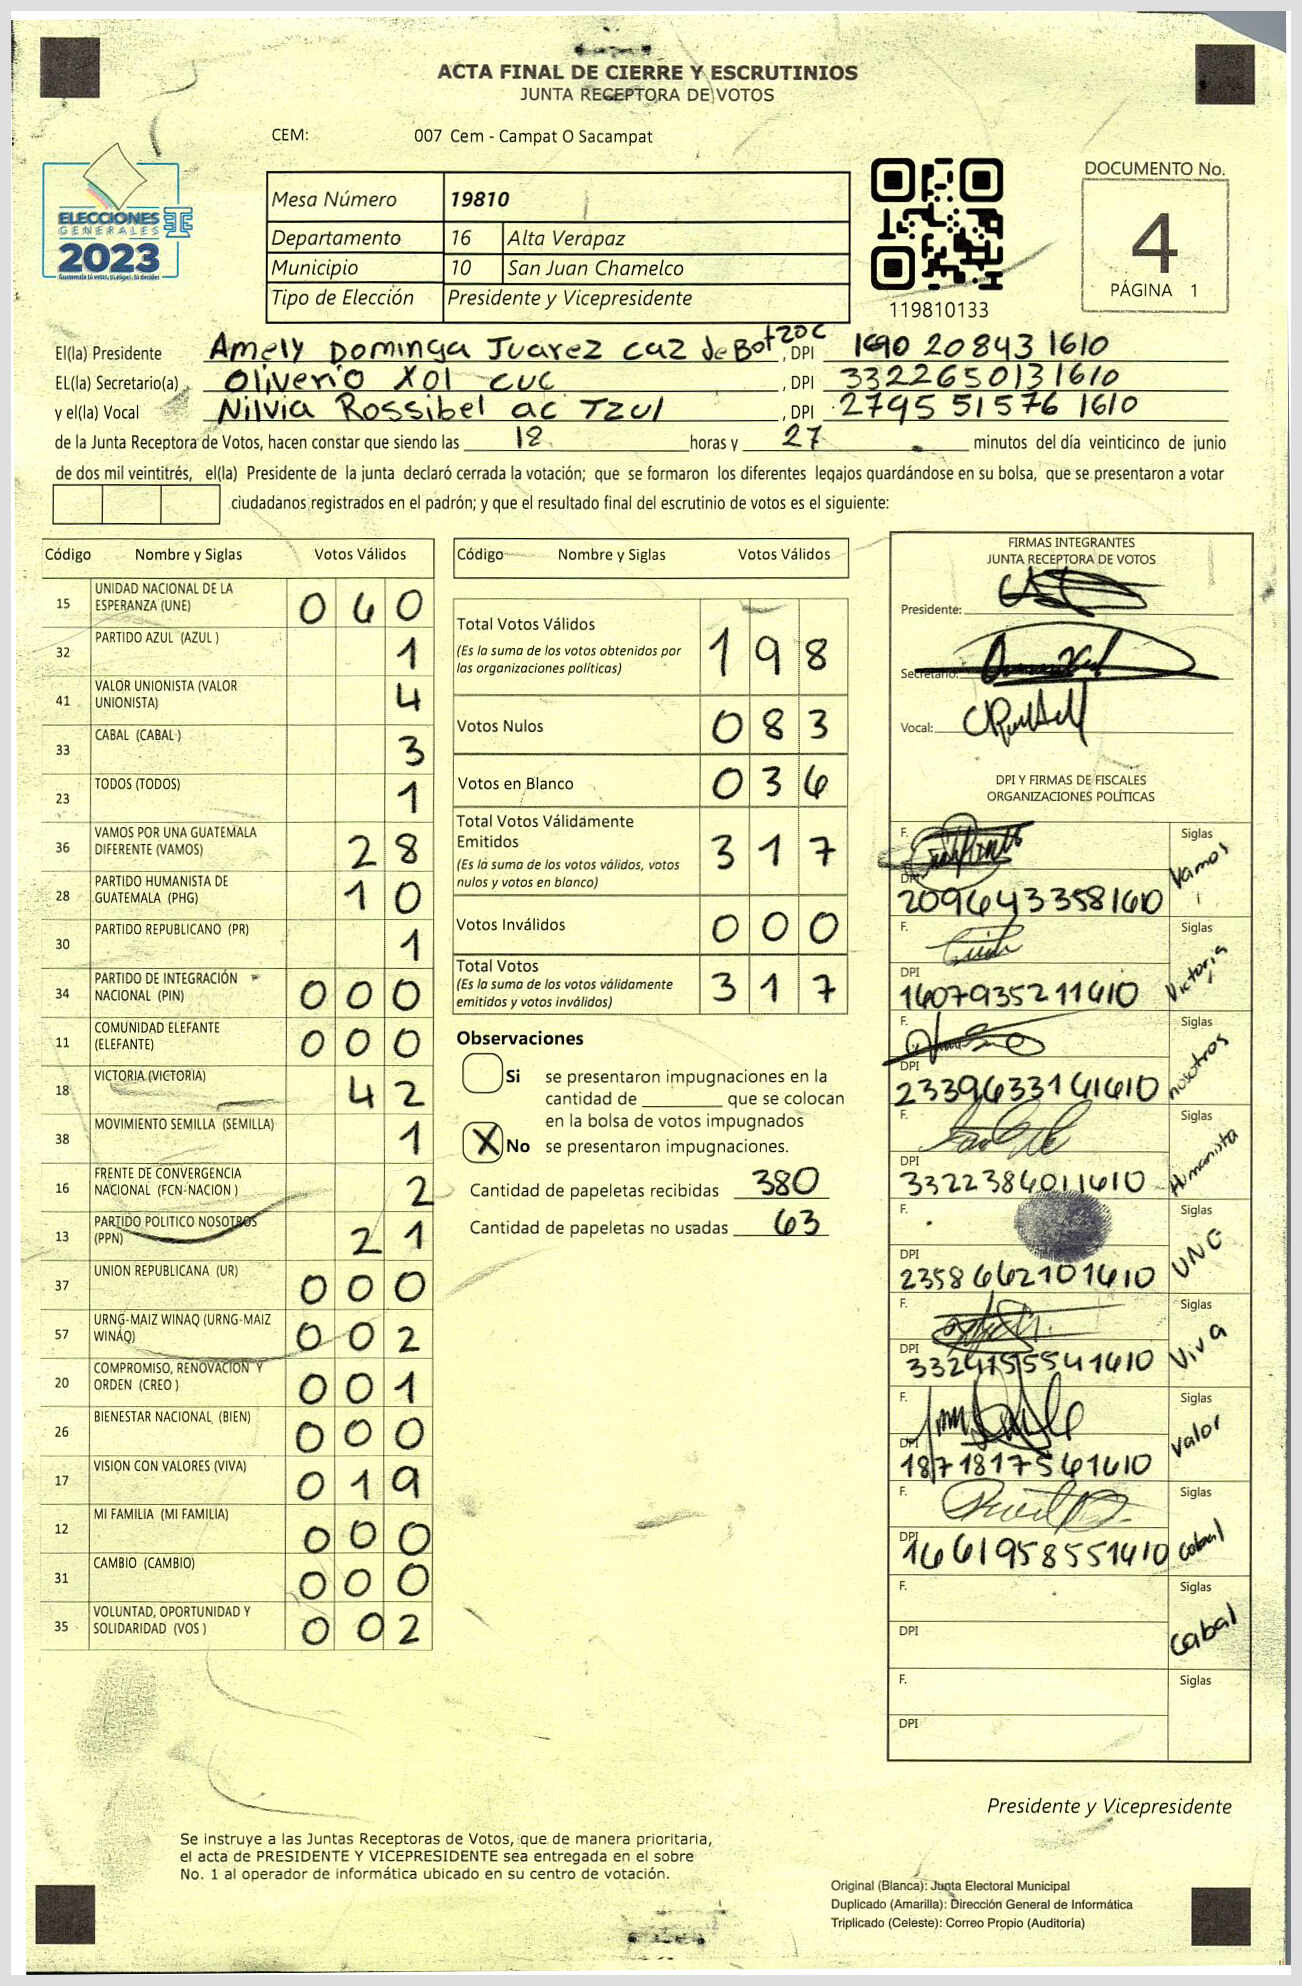 ACTA FINAL DE CIERRE Y ESCRUTINIOS
JUNTA RECEPTORA DE VOTOS
CEM: 007 Cem - Campat O Sacampat
ELECCIONES
GENERALES
2023
Guatemala tú votas, tú eliges, tú decides
Mesa Número 19810
Departamento 16 Alta Verapaz
Municipio 10 San Juan Chamelco
Tipo de Elección Presidente y Vicepresidente
119810133
DOCUMENTO No.
4
PÁGINA 1
El(la) Presidente Amely Dominga Juarez Caz de Botzoc , DPI 1690 20843 1610
EL(la) Secretario(a) Oliverio Xol cuc , DPI 3322650131610
y el(la) Vocal Nilvia Rossibel ac Tzul , DPI 2795 51576 1610
de la Junta Receptora de Votos, hacen constar que siendo las 18 horas y 27 minutos del día veinticinco de junio
de dos mil veintitrés, el(la) Presidente de la junta declaró cerrada la votación; que se formaron los diferentes legajos guardándose en su bolsa, que se presentaron a votar
ciudadanos registrados en el padrón; y que el resultado final del escrutinio de votos es el siguiente:
Código Nombre y Siglas Votos Válidos
15 UNIDAD NACIONAL DE LA ESPERANZA (UNE) 060
32 PARTIDO AZUL (AZUL ) 1
41 VALOR UNIONISTA (VALOR UNIONISTA) 4
33 CABAL (CABAL ) 3
23 TODOS (TODOS) 1
36 VAMOS POR UNA GUATEMALA DIFERENTE (VAMOS) 28
28 PARTIDO HUMANISTA DE GUATEMALA (PHG) 10
30 PARTIDO REPUBLICANO (PR) 1
34 PARTIDO DE INTEGRACIÓN NACIONAL (PIN) 000
11 COMUNIDAD ELEFANTE (ELEFANTE) 000
18 VICTORIA (VICTORIA) 42
38 MOVIMIENTO SEMILLA (SEMILLA) 1
16 FRENTE DE CONVERGENCIA NACIONAL (FCN-NACION ) 2
13 PARTIDO POLITICO NOSOTROS (PPN) 21
37 UNION REPUBLICANA (UR) 000
57 URNG-MAIZ WINAQ (URNG-MAIZ WINAQ) 002
20 COMPROMISO, RENOVACION Y ORDEN (CREO ) 001
26 BIENESTAR NACIONAL (BIEN) 000
17 VISION CON VALORES (VIVA) 019
12 MI FAMILIA (MI FAMILIA) 000
31 CAMBIO (CAMBIO) 000
35 VOLUNTAD, OPORTUNIDAD Y SOLIDARIDAD (VOS ) 002
Código Nombre y Siglas Votos Válidos
Total Votos Válidos 198
(Es la suma de los votos obtenidos por las organizaciones políticas)
Votos Nulos 083
Votos en Blanco 036
Total Votos Válidamente Emitidos 317
(Es la suma de los votos válidos, votos nulos y votos en blanco)
Votos Inválidos 000
Total Votos 317
(Es la suma de los votos válidamente emitidos y votos inválidos)
Observaciones
Si se presentaron impugnaciones en la
cantidad de ________ que se colocan
en la bolsa de votos impugnados
X No se presentaron impugnaciones.
Cantidad de papeletas recibidas 380
Cantidad de papeletas no usadas 63
FIRMAS INTEGRANTES
JUNTA RECEPTORA DE VOTOS
Presidente:
Secretario:
Vocal:
DPI Y FIRMAS DE FISCALES
ORGANIZACIONES POLÍTICAS
F. Siglas Vamos
DPI 2096433581610
F. Siglas Victoria
DPI 1607935211610
F. Siglas nosotros
DPI 2339633161610
F. Siglas Humanista
DPI 3322384011610
F. Siglas UNE
DPI 2358662101610
F. Siglas Viva
DPI 3324155541610
F. Siglas Valor
DPI 1871817561610
F. Siglas Cabal
DPI 1661958551610
F. Siglas Cabal
DPI
F. Siglas
DPI
Presidente y Vicepresidente
Se instruye a las Juntas Receptoras de Votos, que de manera prioritaria,
el acta de PRESIDENTE Y VICEPRESIDENTE sea entregada en el sobre
No. 1 al operador de informática ubicado en su centro de votación.
Original (Blanca): Junta Electoral Municipal
Duplicado (Amarilla): Dirección General de Informática
Triplicado (Celeste): Correo Propio (Auditoría)